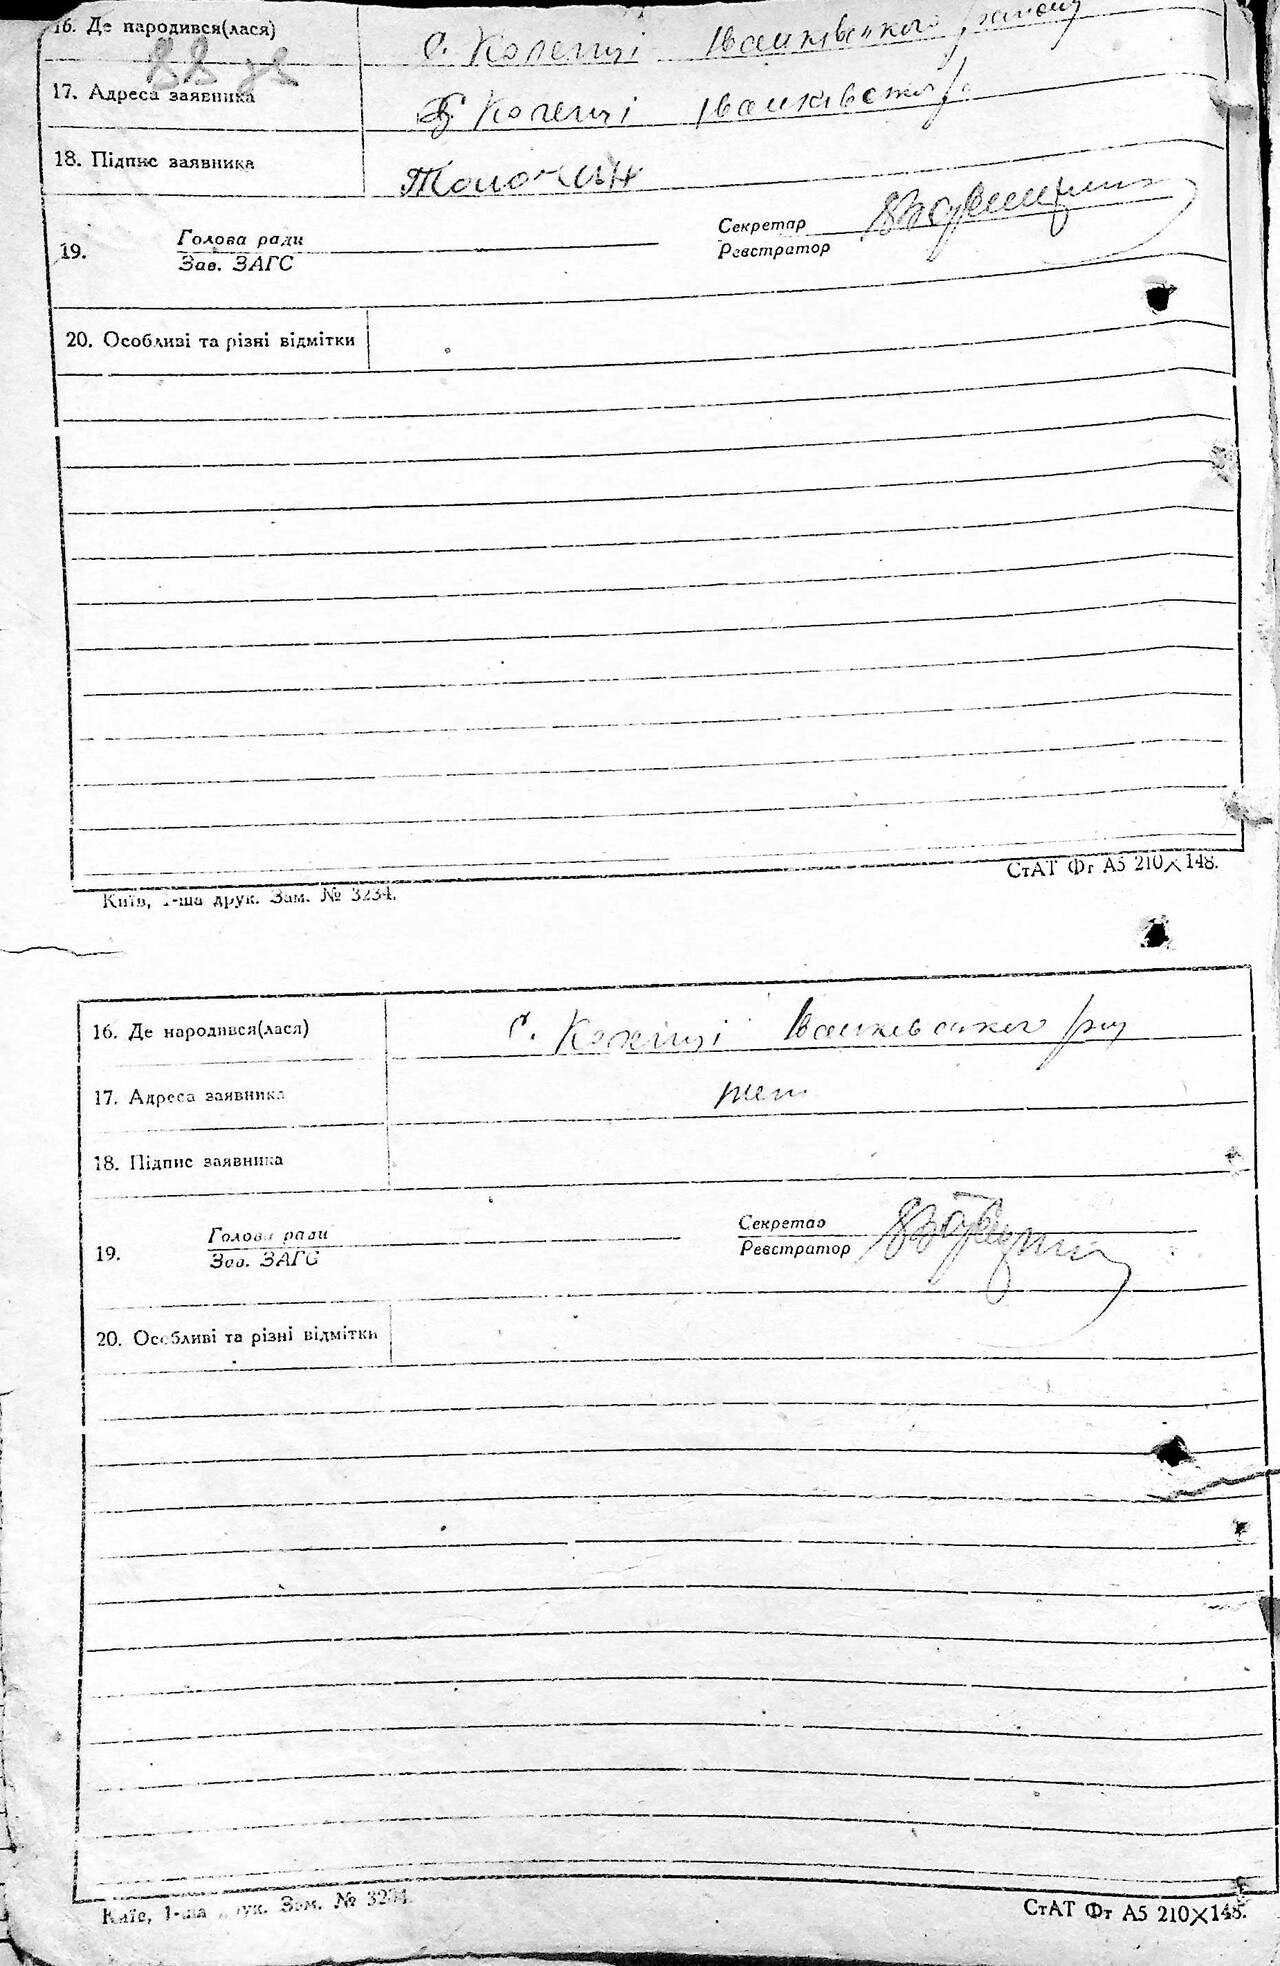 16. Де народився(лася) с. Коленці Іванківського району
88 зв
17. Адреса заявника с. Коленці Іванківського р
18. Підпис заявника
19. Голова ради Секретар
Зав. ЗАГС Реєстратор
20. Особливі та різні відмітки
СтАТ Фт А5 210×148.
Київ, 1-ша друк. Зам. № 3234.
16. Де народився(лася) с. Коленці Іванківського р-ну
17. Адреса заявника теж
18. Підпис заявника
19. Голова ради Секретар
Зав. ЗАГС Реєстратор
20. Особливі та різні відмітки
Київ, 1-ша друк. Зам. № 3234.
СтАТ Фт А5 210×148.